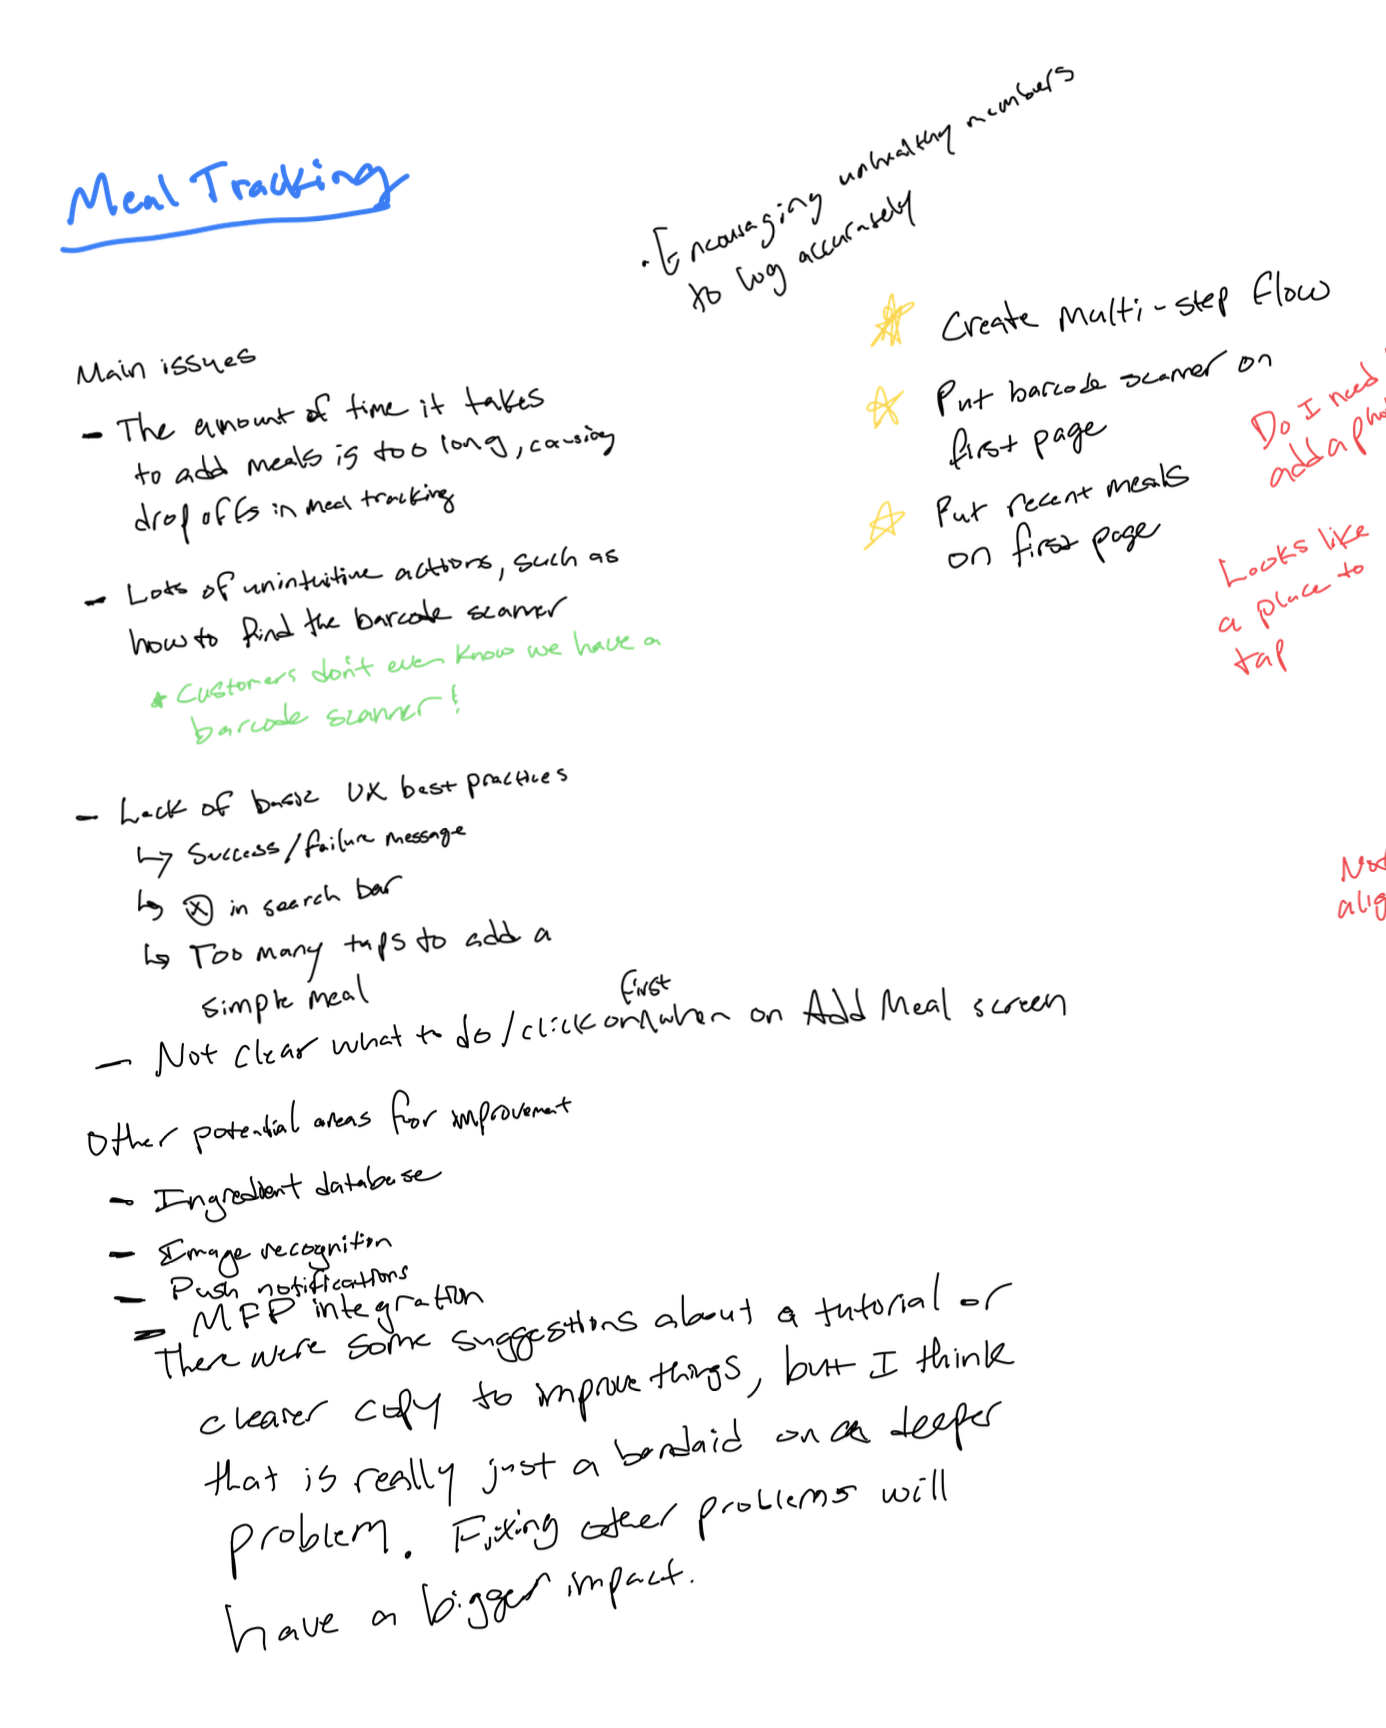 Meal Tracking
• Encouraging unhealthy members
to log accurately
Create multi-step flow
Put barcode scanner on
first page
Put recent meals
on first page
Do I need
add a
Looks like
a place to
tap
Main issues
- The amount of time it takes
to add meals is too long, causing
drop offs in meal tracking
- Lots of unintuitive actions, such as
how to find the barcode scanner
* Customers don't even know we have a
barcode scanner!
- Lack of basic UX best practices
↳ Success/failure message
↳ ⓧ in search bar
↳ Too many taps to add a
simple meal
first
- Not clear what to do/click on ^ when on Add Meal screen
Other potential areas for improvement
- Ingredient database
- Image recognition
- Push notifications
- MFP integration
There were some suggestions about a tutorial or
clearer copy to improve things, but I think
that is really just a bandaid on a deeper
problem. Fixing other problems will
have a bigger impact.